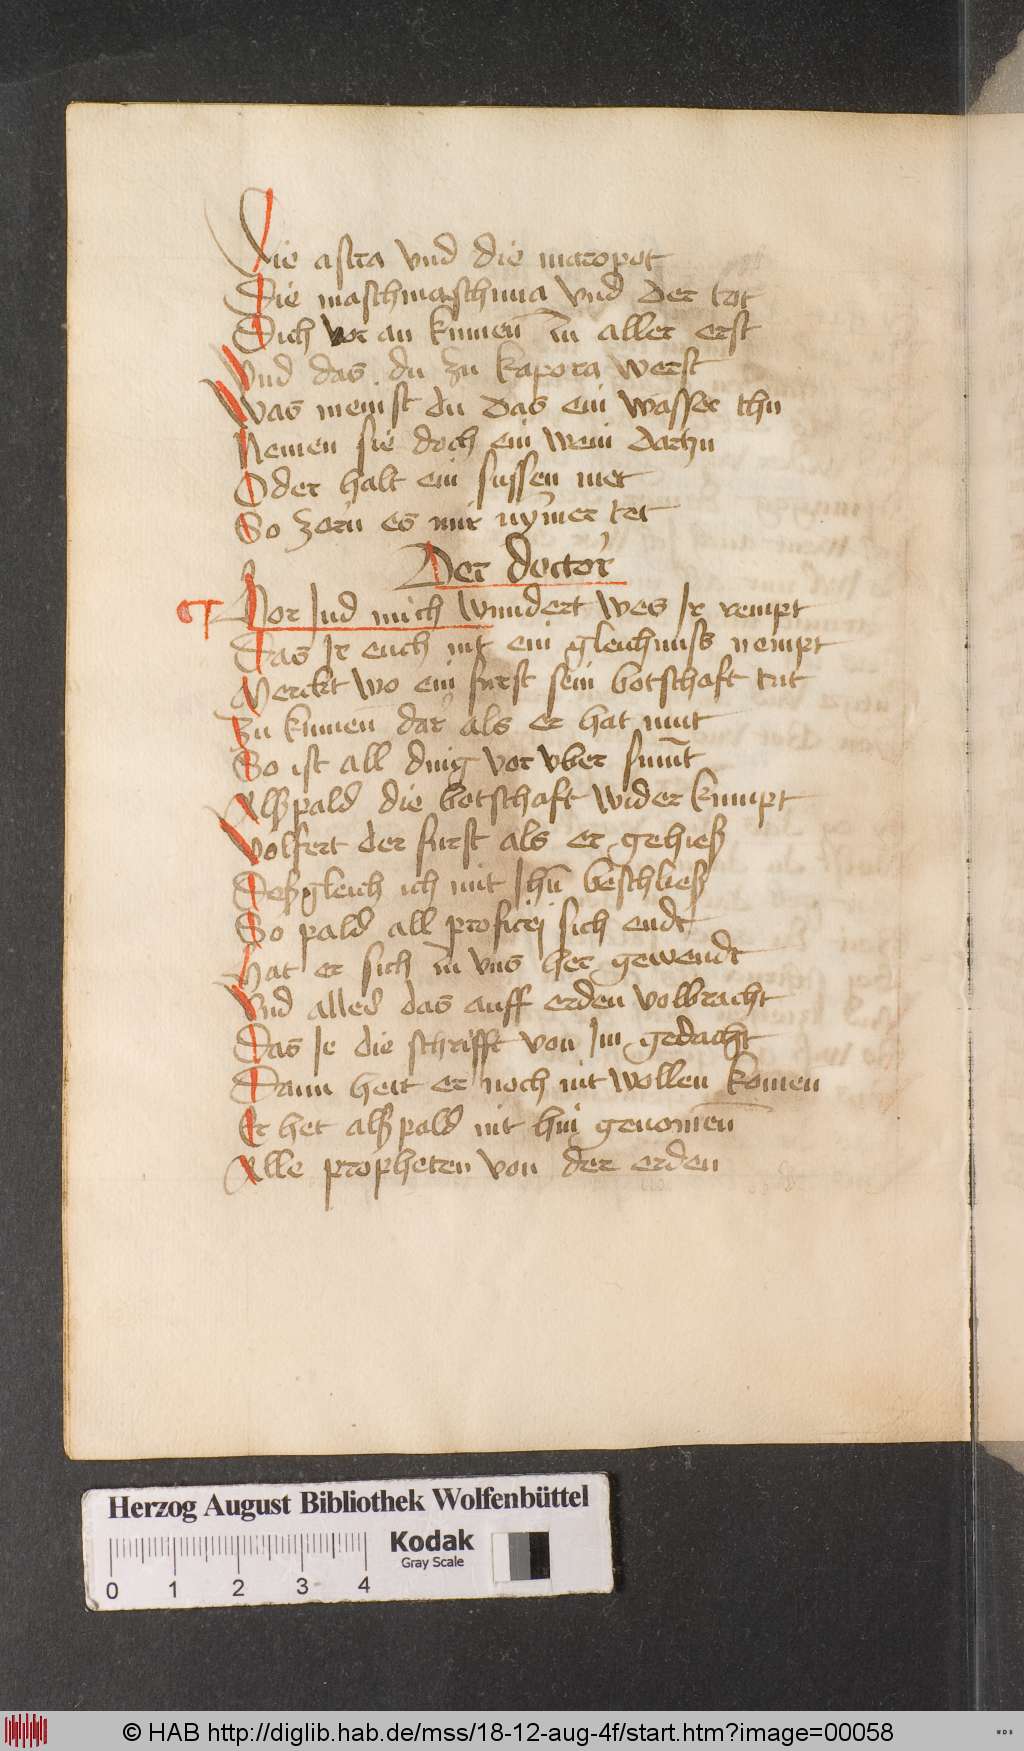 Die asita vnd die matopot
Die maschmaschuna vnd der tot
Dich vor an kumen in aller erst
Vnd das du zu kapora werst
Was meinst du das ein wasser thu
Nemen sie doch ein wein dartzu
Oder halt ein sussen met
So zorn es mir nymer tet
Der doctor
Hor Jud mich wundert wes Ir rempt
Das Ir euch nit ein gleichnuss nempt
Merckt wo ein furst sein botschaft tut
Zu kumen dar als er hat mut
So ist all ding vor vber sumt
Alßpald die botschaft wider kumpt
Volfert der furst als er gehieß
Deßgleich ich mit Jhu beschließ
So pald all profitej sich endt
Hat er sich in vns her gewendt
Vnd alles das auff erden volbracht
Das Je die schrifft von Im gedacht
Dann heit er noch nit wollen komen
Er het alßpald nit hin genomen
Alle propheten von der erden
Herzog August Bibliothek Wolfenbüttel
Kodak
Gray Scale
0 1 2 3 4
© HAB http://diglib.hab.de/mss/18-12-aug-4f/start.htm?image=00058
WDB